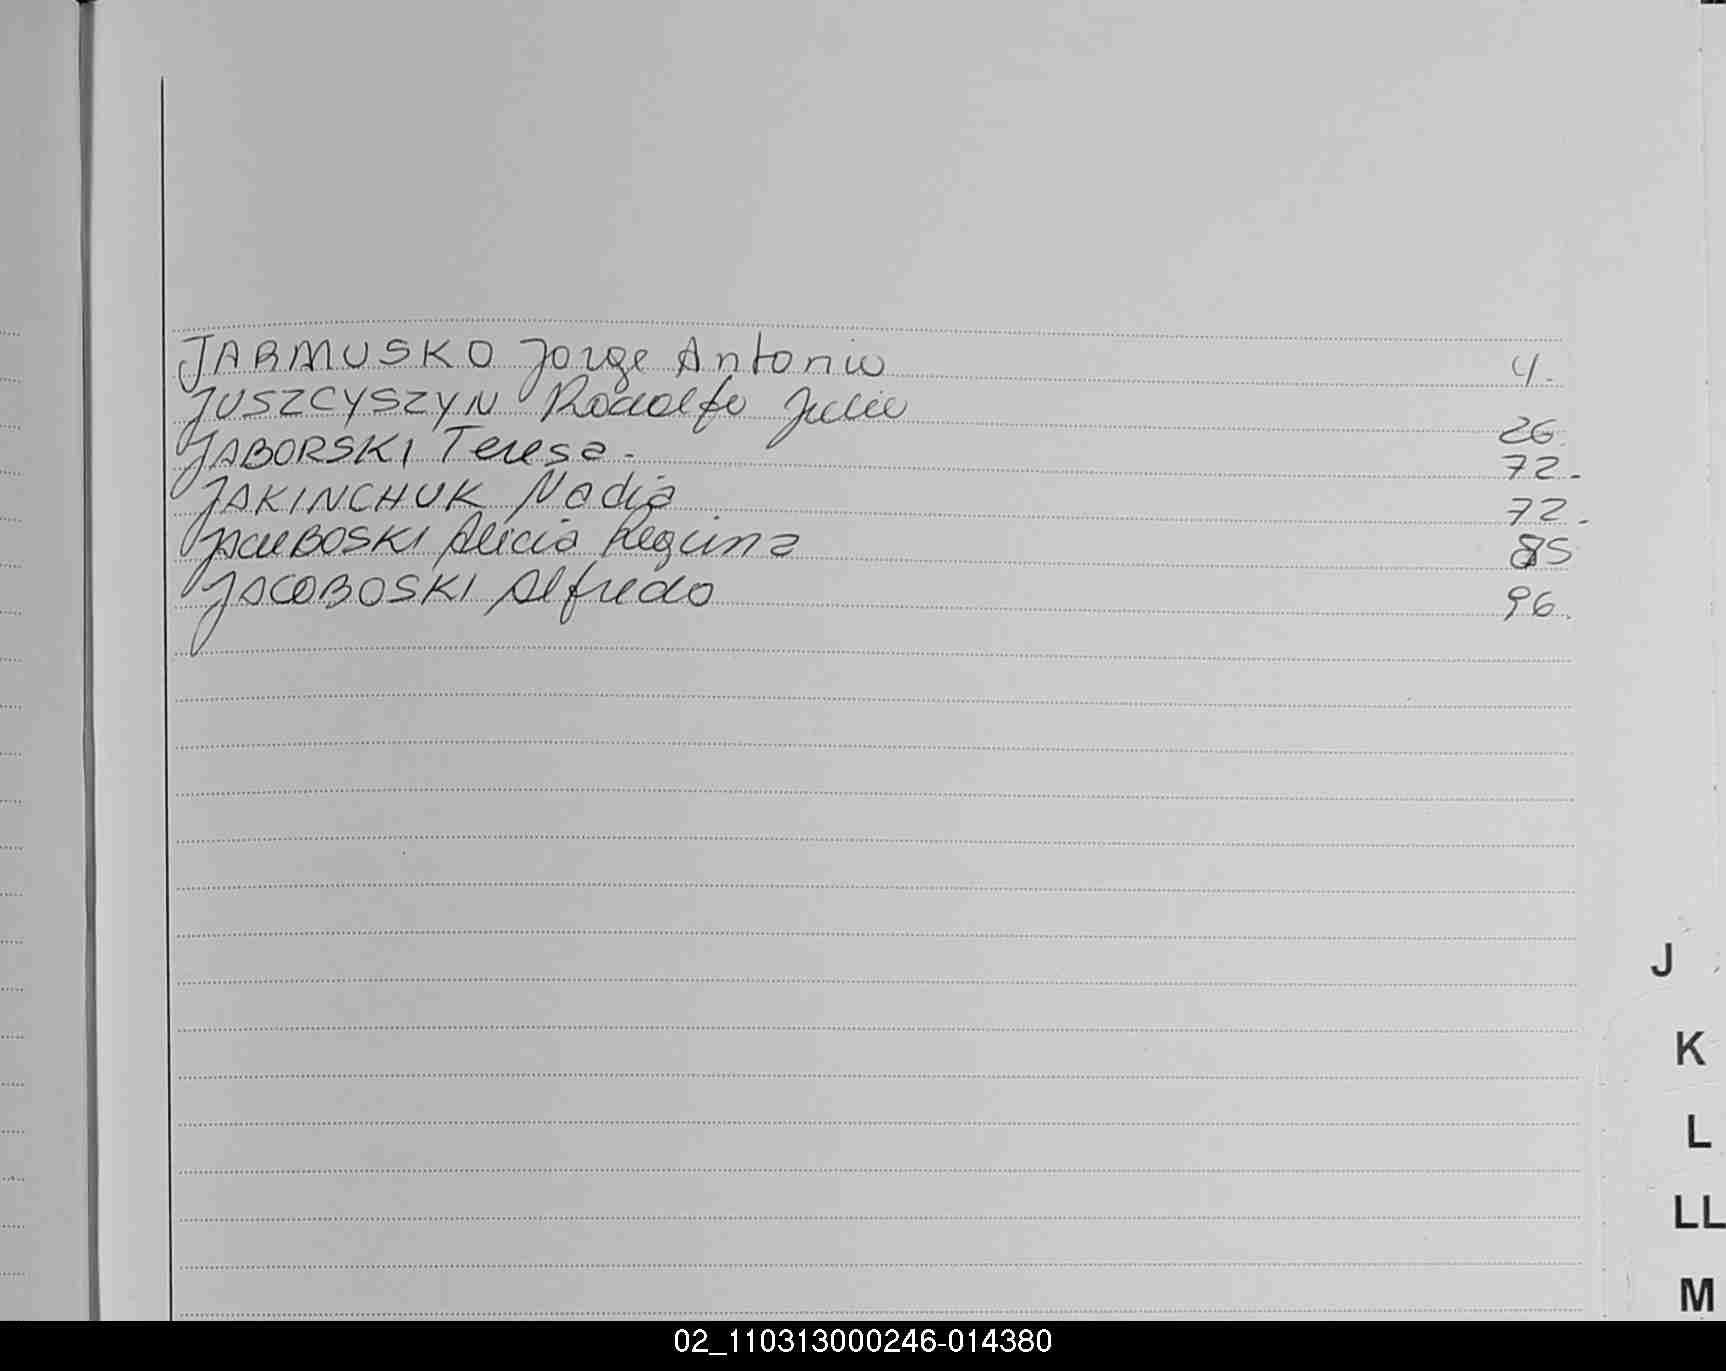 JARMUSKO Jorge Antonio 4.
JUSZCYSZYN Rodolfo Julio 26.
JABORSKI Teresa. 72.
JAKINCHUK Nadia 72.
JACUBOSKI Alicia Regina 85
JACOBOSKI Alfredo 96.
J
K
L
LL
M
02_110313000246-014380